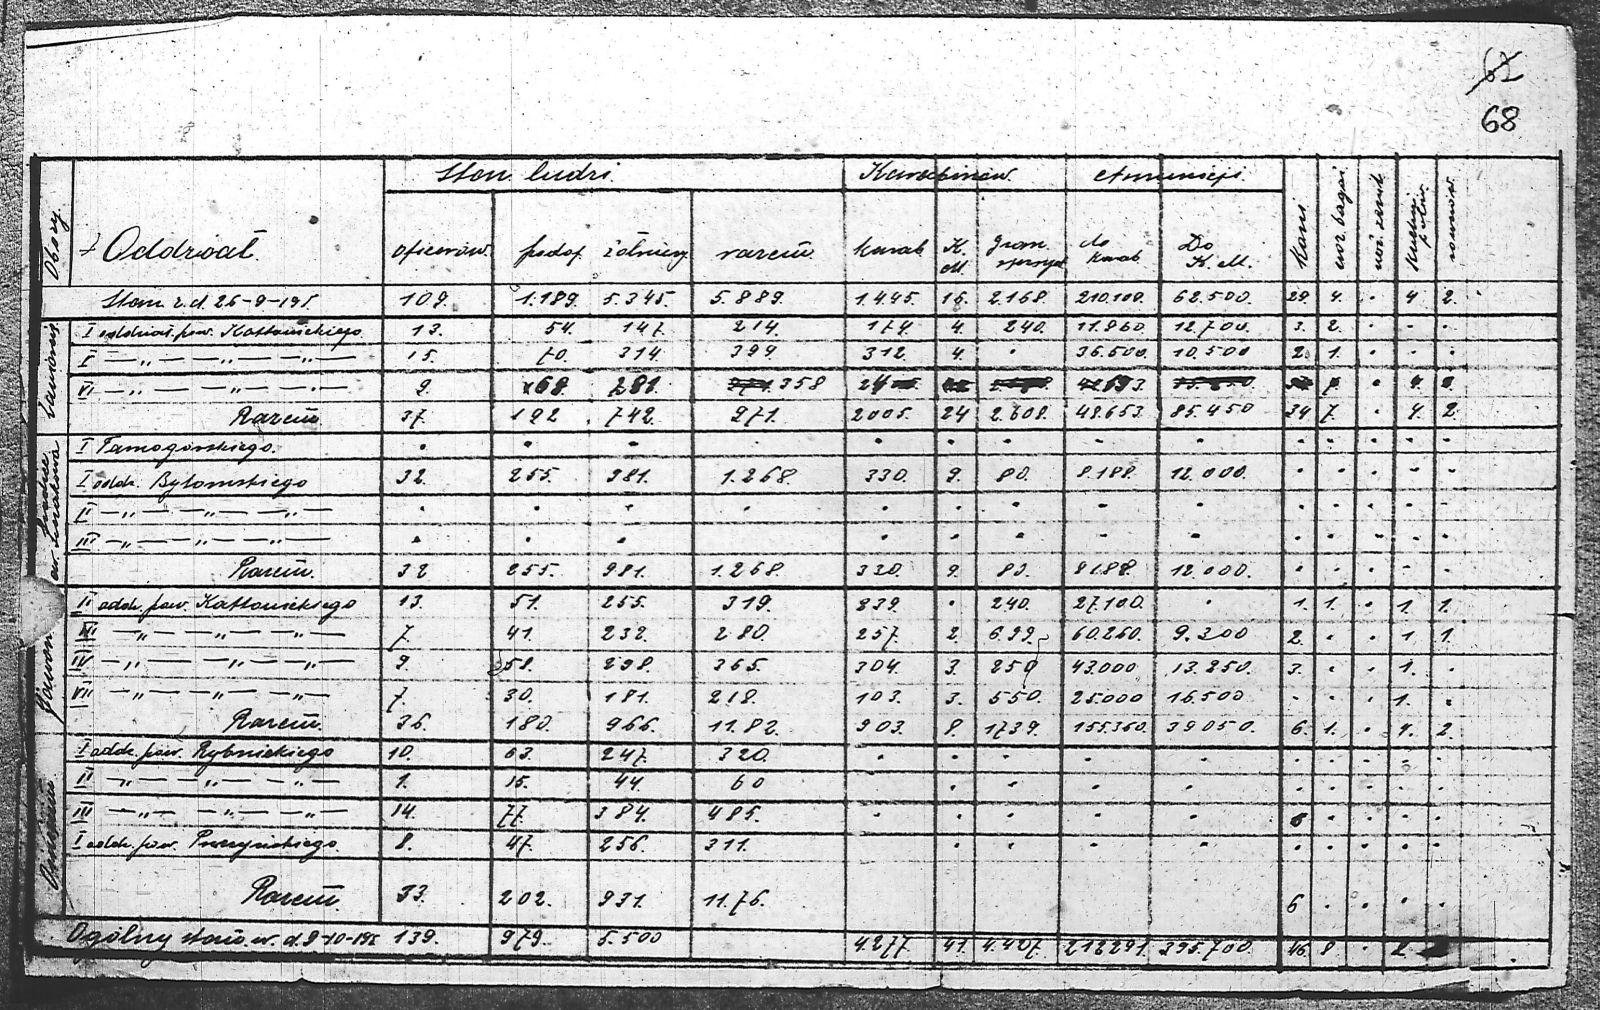 68
Stan ludzi Karabinów Amunicji
Obozy
Oddział oficerów podof. żołnierzy razem karab. K. M. gran. do karab. Do K. M. koni woz. bagaż. kuchn. polow.
Stan z d. 26-9-19 109. 1.189. 5.345. 5.889. 1.445. 16. 2.168. 210.100. 62.500. 29. 4. . 4. 2.
I oddział pow. Kattowickiego 13. 54. 147. 214. 174. 4. 240. 11.960. 12.700. 3. 2. . . .
V —„— —„— —„— 15. 70. 314. 399. 312. 4. . 36.500. 10.500 2. 1. . . .
VI —„— —„— —„— 9. 68. 281. 358
Razem 37. 192. 742. 971. 2005. 24. 2.608. 48.653. 85.450 34. 7. . 4. 2.
I Tarnogórskiego. . . . . . . . . . . . . .
I oddz. Bytomskiego 32. 255. 981. 1.268. 330. 9. 80. 9.188. 12.000. . . . . .
II —„— —„— —„— . . . . . . . . . . . . . .
III —„— —„— —„— . . . . . . . . . . . . .
Razem. 32 255. 981. 1.268. 330. 9. 80. 9188. 12.000. . . . . .
II oddz. pow. Kattowickiego 13. 51. 255. 319. 839. . 240. 27.100. . 1. 1. . 1. 1.
III —„— —„— —„— 7. 41. 232. 280. 257. 2. 699. 60.260. 9.300 2. . . 1. 1.
IV —„— —„— —„— 9. 58. 298. 365. 304. 3. 250 43.000 13.250. 3. . . 1. .
VII —„— —„— —„— 7. 30. 181. 218. 103. 3. 550. 25.000 16.500 . . . 1. .
Razem. 36. 180. 966. 11.82. 903. 8. 1739. 155.360. 39.050. 6. 1. . 4. 2.
I oddz. pow. Rybnickiego 10. 63. 247. 320. . . . . . . . . . .
II —„— —„— —„— 1. 15. 44. 60 . . . . . . . . .
III —„— —„— —„— 14. 77. 384. 485. . . . . . 6 . . . .
I oddz. pow. Pszczyńskiego 8. 47. 256. 311. . . . . . . . . .
Razem. 33. 202. 931. 11.76. 6 . . . .
Ogólny stan w. d. 9-10-19 139. 979. 5.500 4.277. 41. 4.427. 212291. 395.700. 46. 8. .